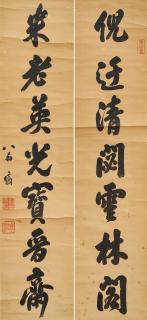 倪迂清閟雲林閣
米老英光寶晉齋